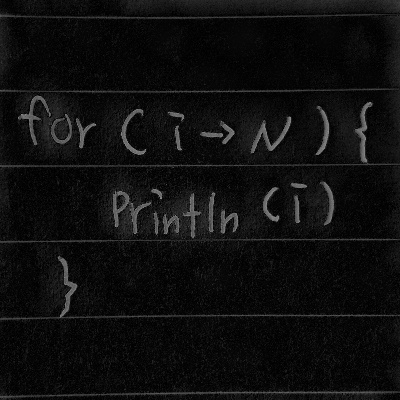 for (i → N) {
Println (i)
}